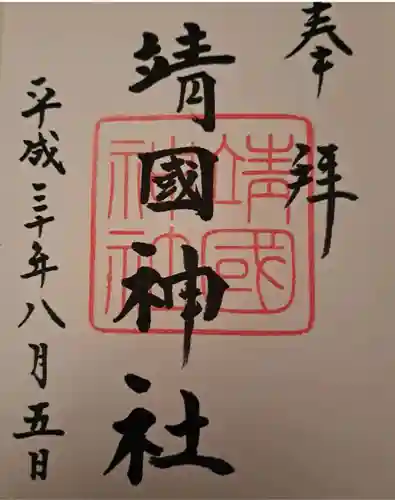 奉拝
靖國神社
靖國神社
平成三十年八月五日